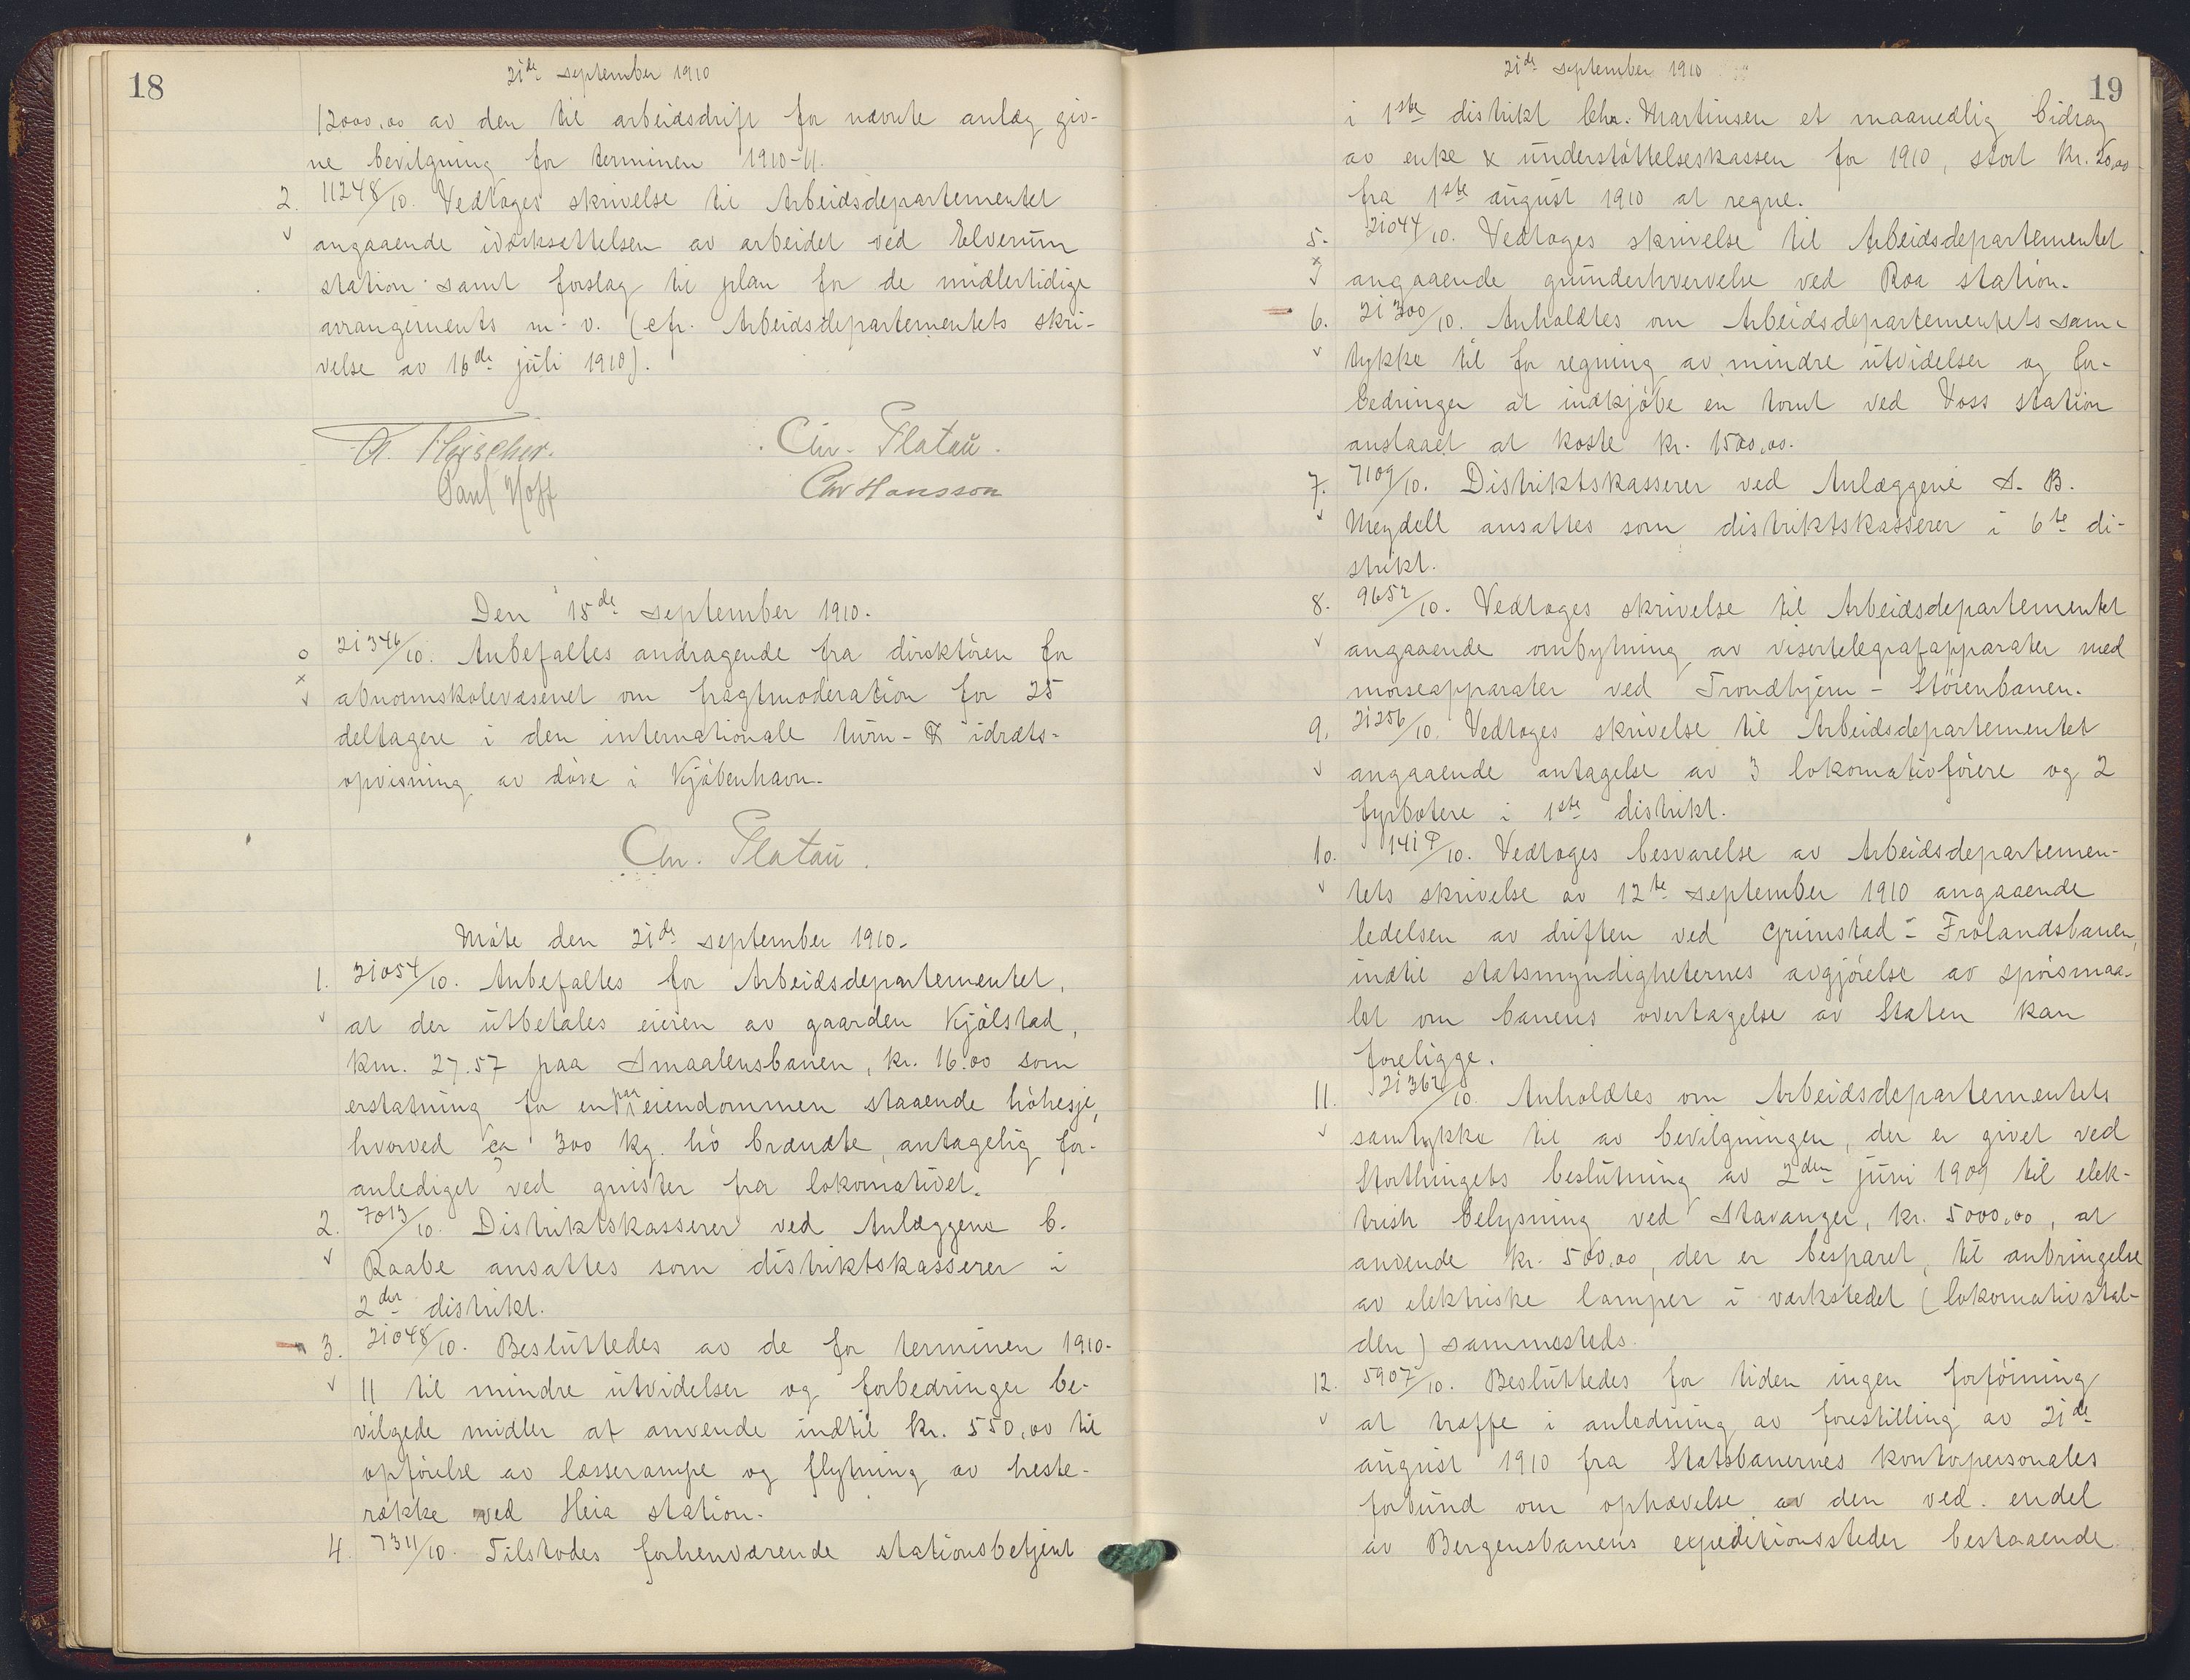 18
21de september 1910
12000,00 av den til arbeidsdrift for nævnte anlæg giv-
ne bevilgning for terminen 1910-11.
2. 11248/10. Vedtoges skrivelse til Arbeidsdepartementet
angaaende iværksættelsen av arbeidet ved Elverum
station samt forslag til plan for de midlertidige
arrangements m. v. (cfr. Arbeidsdepartementets skri-
velse av 16de juli 1910).
Chr. Platou.
Paul Hoff
Chr Hansson
Den 15de september 1910.
21346/10. Anbefaltes andragende fra direktören for
abnormskolevæsenet om fragtmoderation for 25
deltagere i den internationale turn- & idræts-
opvisning av döve i Kjöbenhavn.
Chr. Platou.
Möte den 21de september 1910.
1. 21054/10. Anbefaltes for Arbeidsdepartementet,
at der utbetales eieren av gaarden Kjölstad,
km. 27.57 paa Smaalensbanen, kr. 16.00 som
erstatning for en paa eiendommen staaende höhesje,
hvorved ca 300 kg. hö brændte, antagelig for-
anlediget ved gnister fra lokomotivet.
2. 7013/10. Distriktskasserer ved Anlæggene C.
Raabe ansattes som distriktskasserer i
2det distrikt.
3. 21048/10. Besluttedes av de for terminen 1910-
11 til mindre utvidelser og forbedringer be-
vilgede midler at anvende indtil kr. 550,00 til
opförelse av læsserampe og flytning av heste-
række ved Heia station.
4. 7311/10. Tilstodes forhenværende stationsbetjent
19
21de september 1910
i 1ste distrikt Chr. Martinsen et maanedlig bidrag
av enke & understöttelseskassen for 1910, stort kr. 20,00
fra 1ste august 1910 at regne.
5. 21044/10. Vedtoges skrivelse til Arbeidsdepartementet
angaaende grunderhvervelse ved Roa station.
6. 21300/10. Anholdtes om Arbeidsdepartementets sam-
tykke til for regning av mindre utvidelser og for-
bedringer at indkjöbe en tomt ved Voss station
anslaaet at koste kr. 1500,00.
7. 7109/10. Distriktskasserer ved Anlæggene S. B.
Meydell ansattes som distriktskasserer i 6te di-
strikt.
8. 9652/10. Vedtoges skrivelse til Arbeidsdepartementet
angaaende ombytning av visertelegrafapparater med
morseapparater ved Trondhjem - Störenbanen.
9. 21256/10. Vedtoges skrivelse til Arbeidsdepartementet
angaaende antagelse av 3 lokomotivförere og 2
fyrbötere i 1ste distrikt.
10. 141P/10. Vedtoges besvarelse av Arbeidsdepartemen-
tets skrivelse av 12te september 1910 angaaende
ledelsen av driften ved Grimstad - Frolandsbanen,
indtil statsmyndigheternes avgjörelse av spörsmaa-
let om banens overtagelse av Staten kan
foreligge.
11. 21362/10. Anholdtes om Arbeidsdepartementets
samtykke til av bevilgningen, der er givet ved
Storthingets beslutning av 2den juni 1909 til elek-
trisk belysning ved Stavanger, kr. 5000,00, at
anvende kr. 500,00, der er besparet, til anbringelse
av elektriske lamper i værkstedet (lokomotivstal-
den) sammesteds.
12. 5907/10. Besluttedes for tiden ingen forföining
at træffe i anledning av forestilling av 21de
august 1910 fra Statsbanernes kontorpersonales
forbund om ophævelse av den ved endel
av Bergensbanens expeditionssteder bestaaende